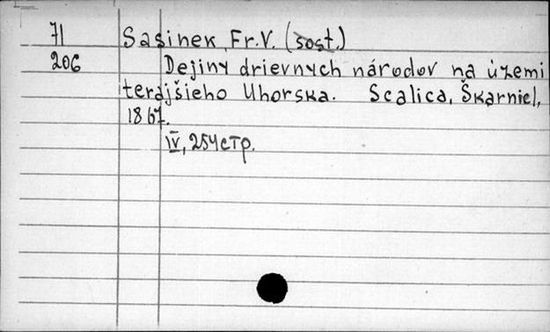 71 Sasinek, Fr. V. (sost.)
206 Dejiny drievnych národov na území
terajšieho Uhorska. Scalica, Škarniel,
1867.
IV, 254 стр.